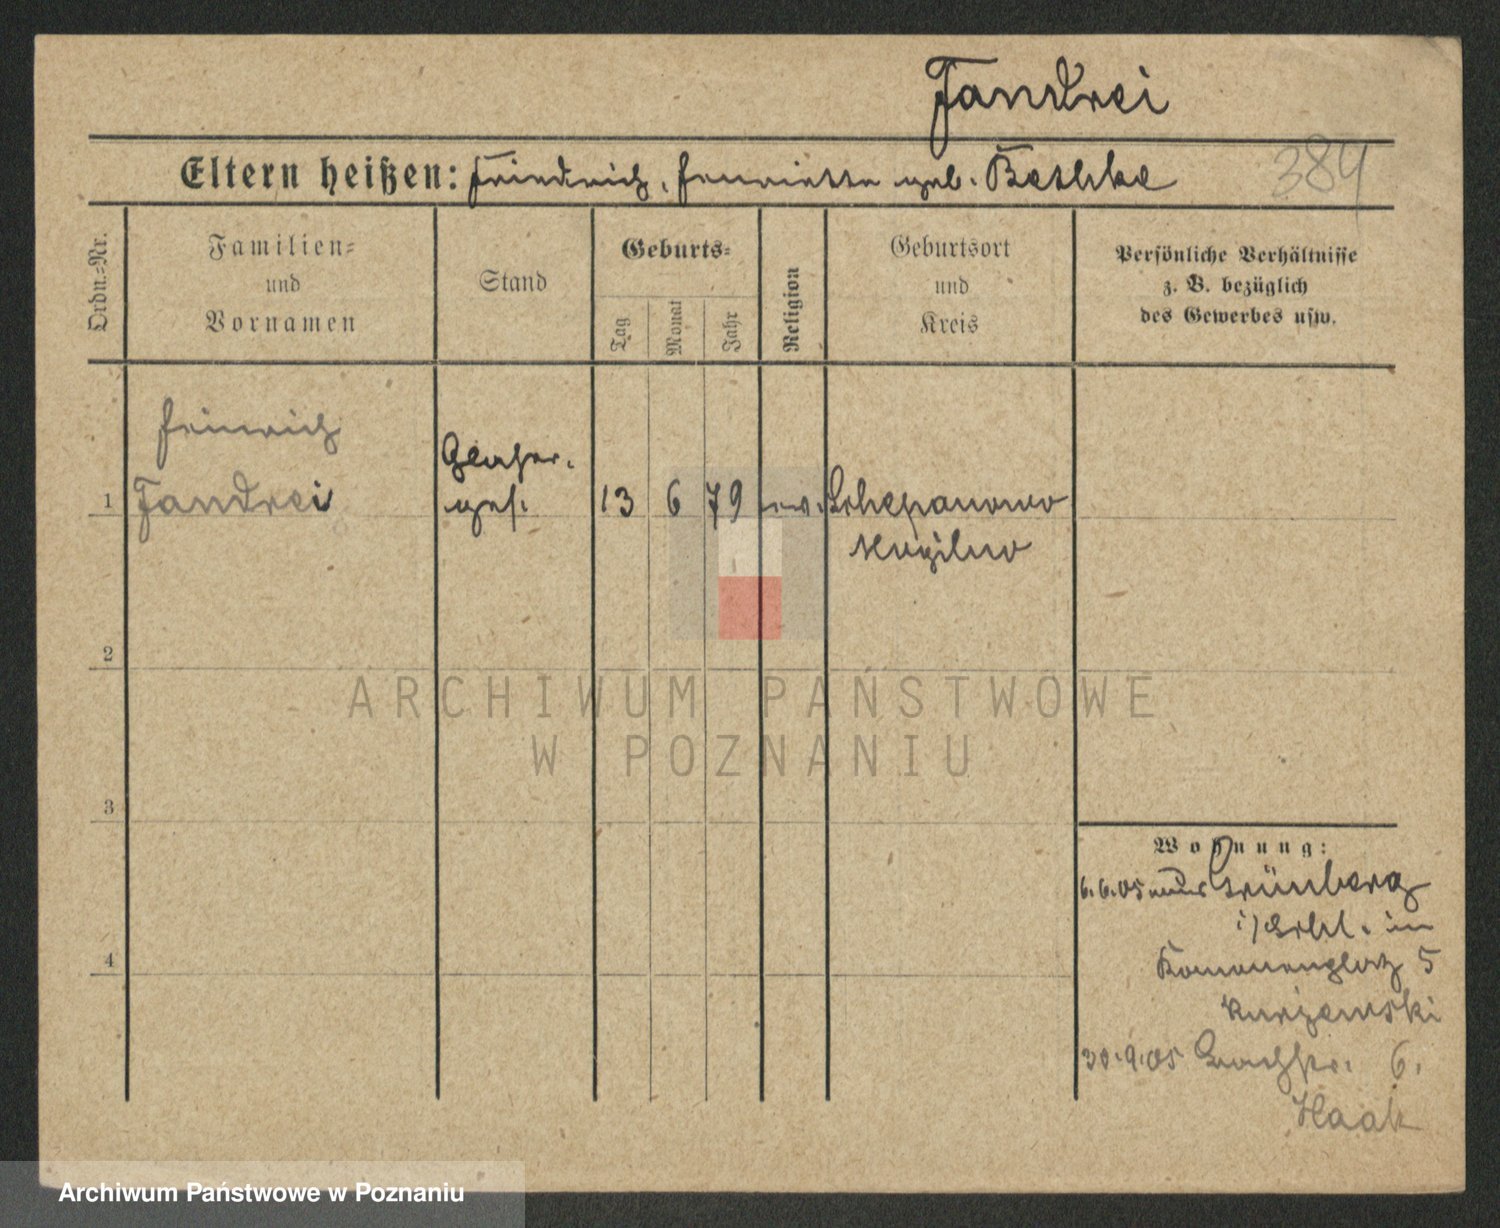 Fandrei
384
Eltern heißen: Friedrich, Henriette geb. Bethke
Ordn.=Nr.
Familien=
und
Vornamen
Stand
Geburts=
Tag
Monat
Jahr
Religion
Geburtsort
und
Kreis
Persönliche Verhältnisse
z. B. bezüglich
des Gewerbes usw.
Heinrich
1 Fandrei
Glaser.
ges.
13 6 79 ev. Szczepanowo
Mogilno
2
3
4
Wohnung:
6.6.05 Grünberg
i/Schl. in
5
30.9.05 6.
Haak
ARCHIWUM PAŃSTWOWE
W POZNANIU
Archiwum Państwowe w Poznaniu